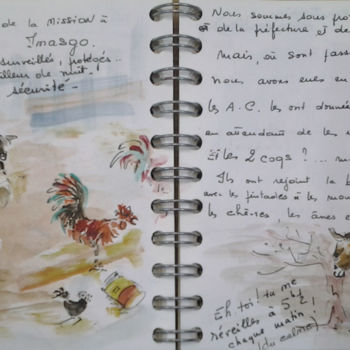 de la Mission à
Imasgo.
surveillés, protégés..
lleur de nuit-
sécurité-
Nous sommes sous pro
et de la préfecture et de
Mais, où sont pass
nous avons eues en
les A.C. les ont donnée
en attendant de les
Et les 2 coqs? ... m
Ils ont rejoint la b
avec les pintades & les mou
les chèvres, les ânes e
Eh, toi! tu me
réveilles à 5h
chaque matin
(du calme)